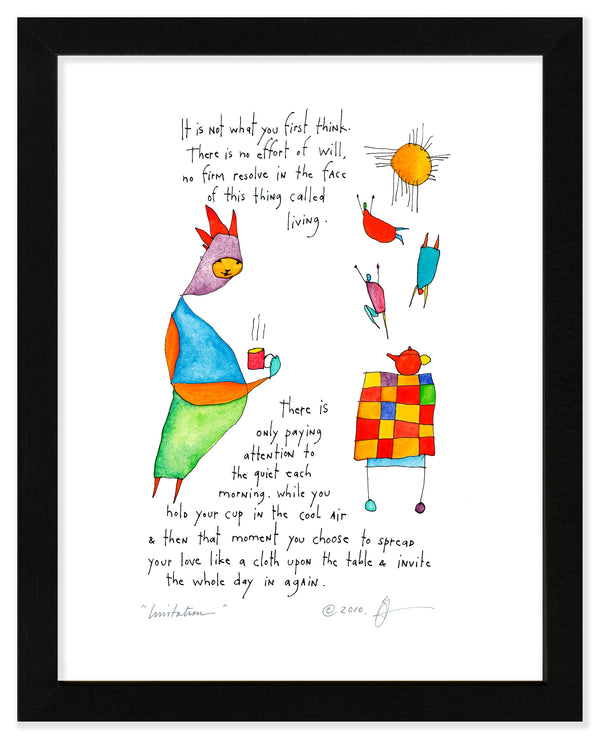 It is not what you first think.
There is no effort of will,
no firm resolve in the face
of this thing called
living.
There is
only paying
attention to
the quiet each
morning. while you
hold your cup in the cool air
& then that moment you choose to spread
your love like a cloth upon the table & invite
the whole day in again.
"Invitation" © 2010.